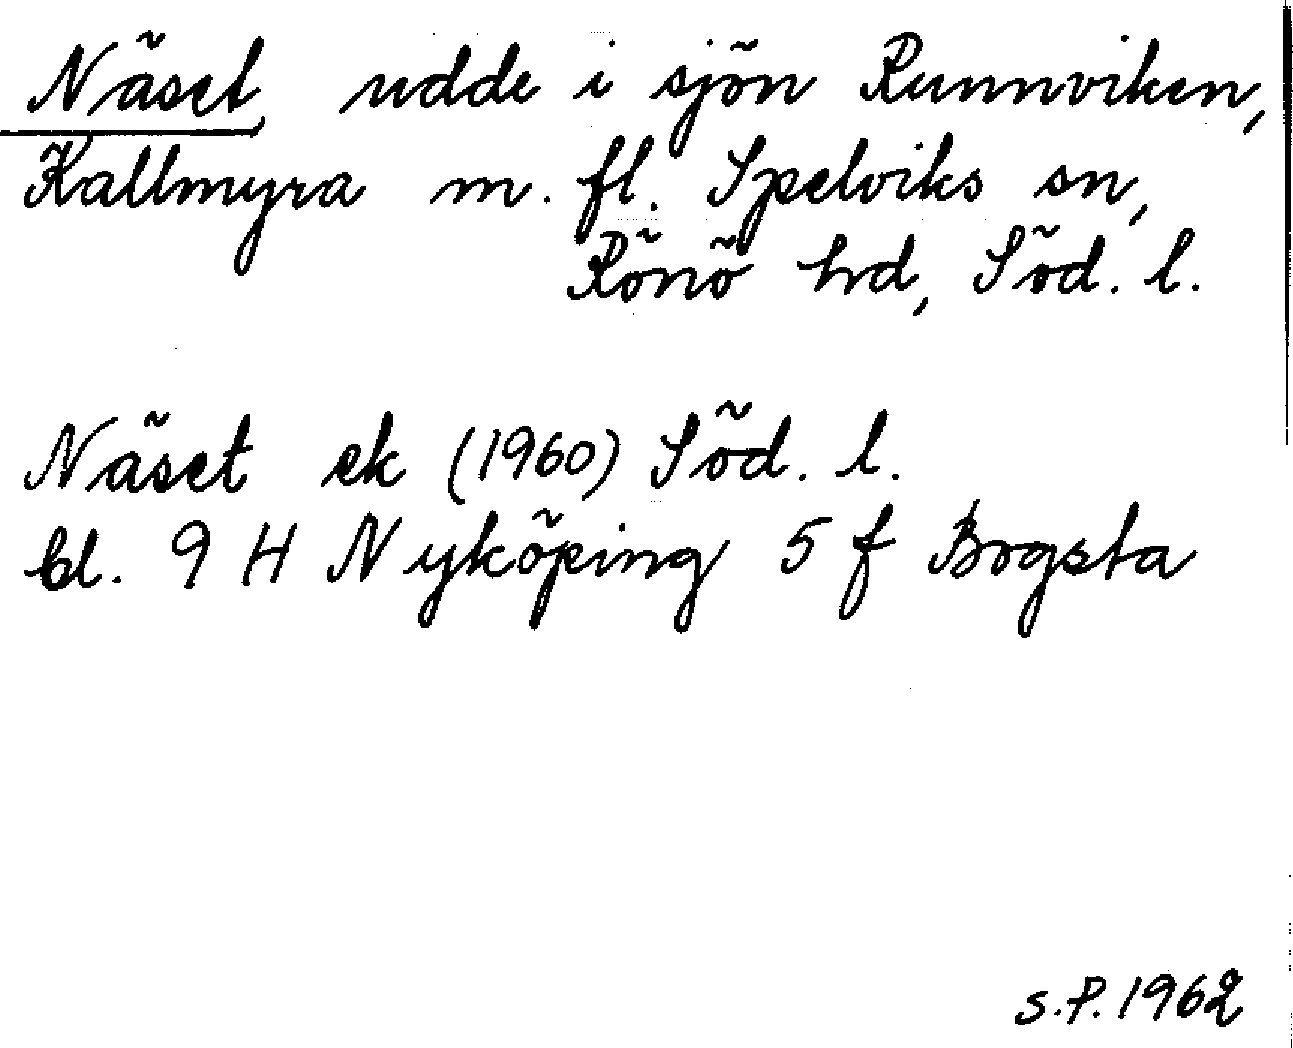 Näset, udde i sjön Runnviken,
Kallmyra m. fl. Spelviks sn,
Rönö hd, Söd. l.
Näset ek (1960) Söd. l.
bl. 9 H Nyköping 5 f Bogsta
S.P. 1962